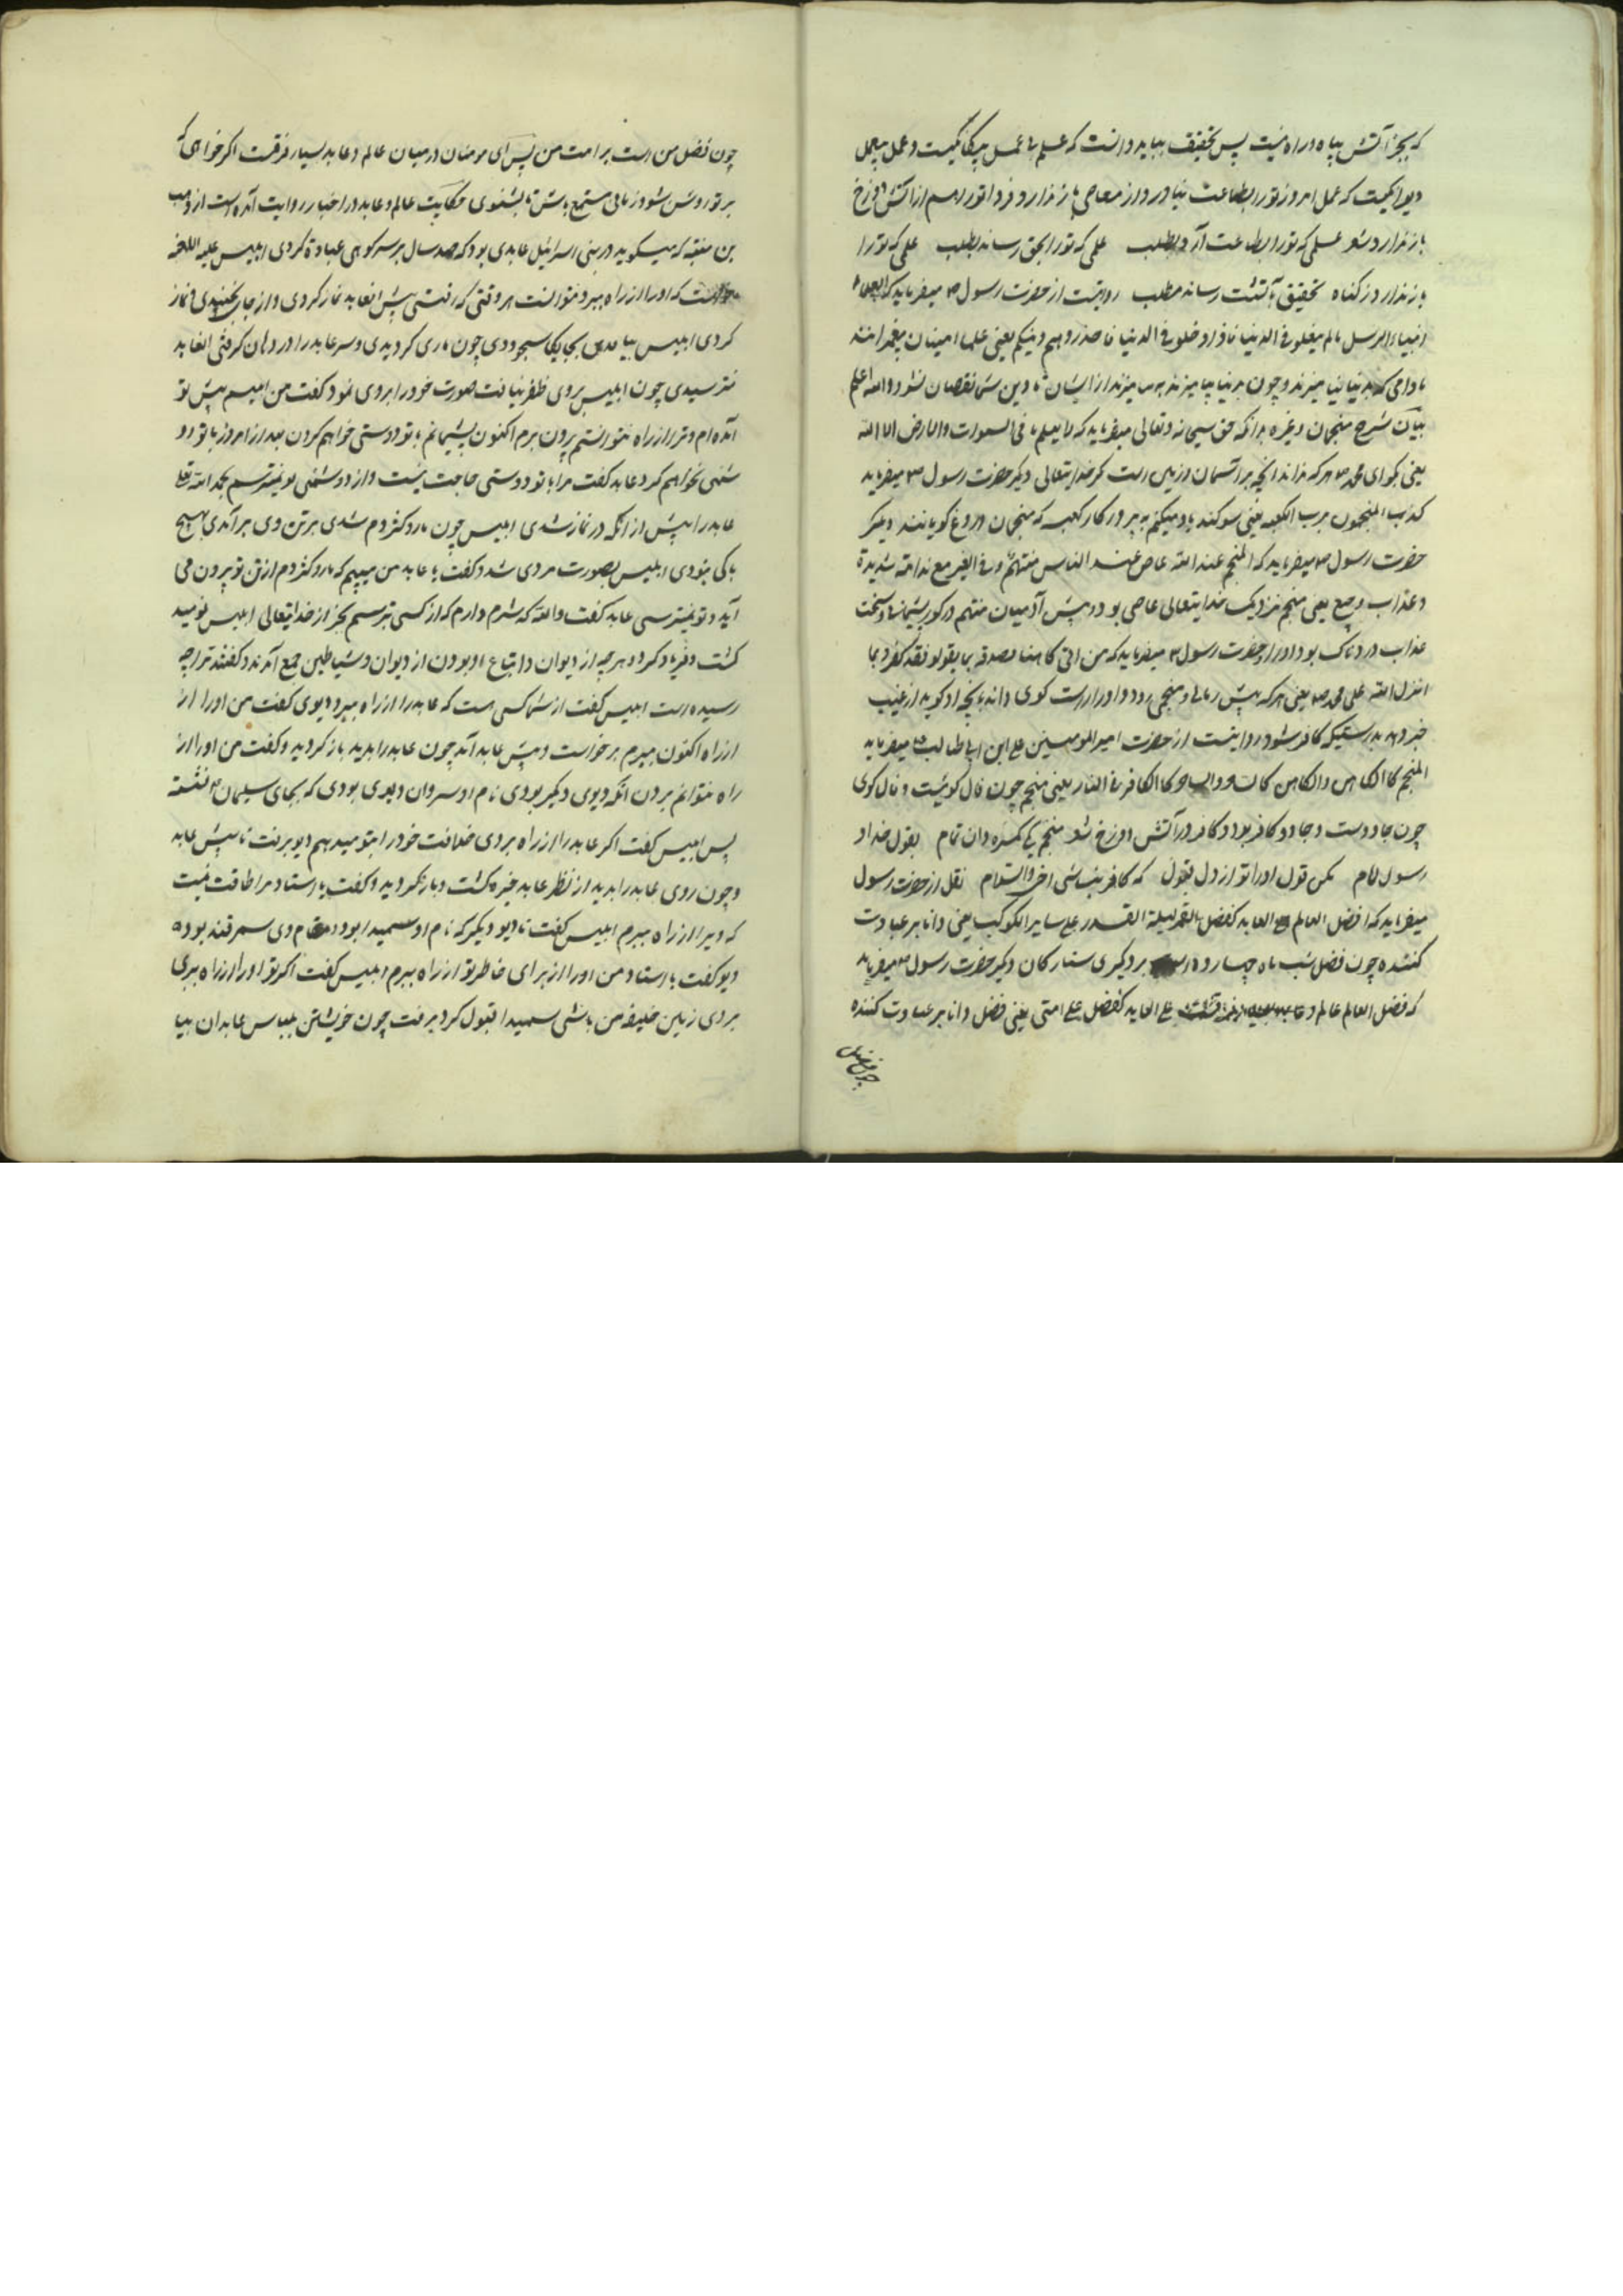 که بجز آتش بپاه و راه نیست پس تحقیق بباید دانست که علم بی عمل بیکانکیست و عمل بیعلم
دیوانکیست که عمل امروز تورا بطاعت نیاورد و از معاصی باز ندارد و فردا تورا هم از آتش دوزخ
باز ندارد و شو علمی که تورا بطاعت آرد بطلب علمی که تورا بحق رساند بطلب علمی که تورا
باز ندارد ز کناه تحقیق بآتشت رساند مطلب روایتست از حضرت رسول ص میفرماید که العلماء
امناء الرسل مالم یدخلو فی الدنیا فاذا دخلو فی الدنیا فاحذروهم دینکم یعنی علما امینان پیغمبرانند
مادامی که بدنیا نیامیزند و چون بدنیا بیامیزند بپرهیزند از ایشان تا دین شما نقصان نشود والله اعلم
بیان شرح منجمان و غیره بدانکه حق سبحانه و تعالی میفرماید که لا یعلم ما فی السموات والارض الا الله
یعنی بکوی ای محمد ص هر که نداند آنچه بر آسمان و زمین است مکر خدایتعالی دیکر حضرت رسول ص میفرماید
کذب المنجمون برب الکعبه یعنی سوکند یاد میکنم به پروردکار کعبه که منجمان دروغ کویانند دیکر
حضرت رسول ص میفرماید که المنجم عند الله عاص عند الناس متهم و فی القبر مع ندامة شدیدة
و عذاب وجیع یعنی منجم نزدیک خدایتعالی عاصی بود و پیش آدمیان متهم در کور پشیمانی و سخت
عذاب دردناک بود او را و حضرت رسول ص میفرماید که من اتی کاهنا فصدقه بما یقول فقد کفر بما
انزل الله علی محمد ص یعنی هر که پیش رمالی و منجمی رود و او را راست کوی داند بآنچه او کوید از غیب
خبر دهد بدرستیکه کافر شود روایتست از حضرت امیرالمومنین علی ابن ابی طالب ع میفرماید
المنجم کالکاهن والکاهن کالساحر والساحر کالکافر فی النار یعنی منجم چون فال کویست و فال کوی
چون جادوست و جادو کافر بود و کافر در آتش دوزخ شود منجم یکی کمره دان تمام بقول خدا و
رسول انام مکن قول او را تو از دل قبول که کافر بباشی اخی والسلام نقل از حضرت رسول
میفرماید که افضل العالم علی العابد کفضل القمر لیلة القدر علی سایر الکوکب یعنی دانا بر عبادت
کننده چون فضل شب ماه چهارده است بر دیکری ستارکان دیکر حضرت رسول ص میفرماید
که فضل العالم علی العابد کفضلی علی امتی یعنی فضل دانا بر عبادت کننده
چون فضل
چون فضل من است بر امت من پس ای مومنان در میان عالم و عابد بسیار فرقست اکر خواهی که
بر تو روشن شود زمانی مستمع باش تا بشنوی حکایت عالم و عابد در اخبار روایت آمده است از وهب
بن منبه که میکوید در بنی اسرائیل عابدی بود که صد سال بر سر کوهی عبادة کردی ابلیس علیه اللعنه
خواست که او را از راه ببرد نتوانست هر وقتی که رفتی پیش انعابد نماز کردی و از جای نجنبیدی و نماز
کردی ابلیس بیامدی بجایکاه سجود وی چون ماری کردیدی و سر عابد را در دهان کرفتی انعابد
نترسیدی چون ابلیس بروی ظفر نیافت صورت خود را بروی نمود کفت من ابلیسم پیش تو
آمده ام و ترا از راه نتوانستم برون برم اکنون پشیمانم با تو دوستی خواهم کردن بعد از امروز با تو د
شمنی نخواهم کرد عابد کفت مرا با تو دوستی حاجت نیست و از دوشمنی تو نیز نترسم بحمد الله تعالی
عابد را پیش از آنکه در نماز شدی ابلیس چون مار و کژدم شدی بر تن وی بر آمدی بهیچ
باکی نبودی ابلیس بصورت مردی شد و کفت یا عابد من میبینم که مار و کژدم از تن تو برون می
آید و تو نیترسی عابد کفت والله که شرم دارم که از کسی بترسم بجز از خدایتعالی ابلیس نومید
کشت و فریاد کرد و هر چه از دیوان و اتباع او بودن از دیوان و شیاطین جمع آمدند و کفتند ترا چه
رسیده است ابلیس کفت از شما کسی هست که عابد را از راه ببرد دیوی کفت من او را از
از راه اکنون ببرم برخواست و پیش عابد آمد چون عابد را بدید باز کردید و کفت من او را از
راه نتوانم بردن آنکه دیوی دیکر بودی نام او سروان دیوی بودی که بجای سلیمان ع نشسته
پس ابلیس کفت اکر عابد را از راه بردی خلافت خود را بتو میدهم دیو برفت تا پیش عابد
و چون روی عابد را بدید از نظر عابد خیره کشت و باز کردید و کفت یا استاد مرا طاقت نیست
که ویرا از راه ببرم ابلیس کفت تا دیو دیکر که نام او سمیدا بود و مقام وی سمرقند بوده
دیو کفت یا استاد من او را از برای خاطر تو از راه ببرم ابلیس کفت اکر تو او را از راه ببری
بر دی زمین خلیفه من باشی سمیدا قبول کرد برفت چون خویشتن بلباس عابدان بیا